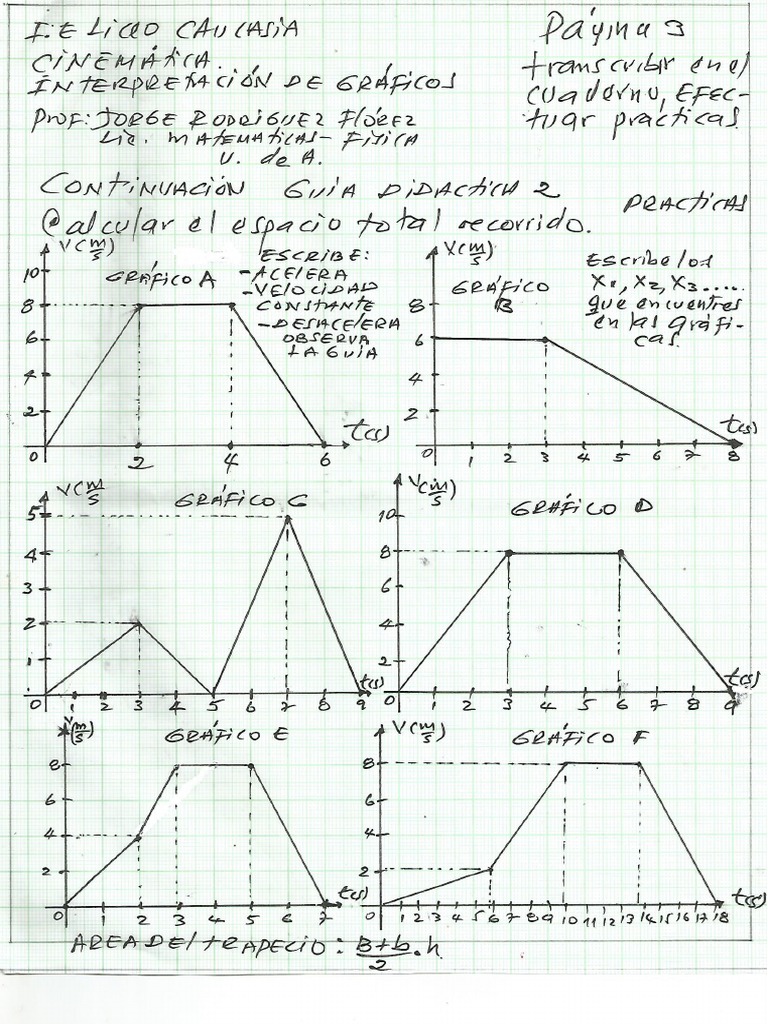 I.E LICEO CAUCASIA
CINEMÁTICA.
INTERPRETACIÓN DE GRÁFICOS
Prof: JORGE RODRÍGUEZ FLÓREZ
Lic. MATEMATICAS- FÍSICA
U. de A.
Página 3
transcribir en el
cuaderno, EFEC-
tuar prácticas.
CONTINUACIÓN GUIA DIDACTICA 2
PRACTICAS
Calcular el espacio total recorrido.
V(m/s)
GRÁFICO A
10
8
6
4
2
0
2
4
6
t(s)
ESCRIBE:
-ACELERA
-VELOCIDAD
CONSTANTE
-DESACELERA
OBSERVA
LA GUIA
V(m/s)
GRÁFICO
B
8
6
4
2
0 1 2 3 4 5 6 7 8
t(s)
Escribe los
X1, X2, X3.....
que encuentres
en las gráfi-
cas.
V(m/s)
GRÁFICO C
5
4
3
2
1
0 1 2 3 4 5 6 7 8 9
t(s)
V(m/s)
GRÁFICO D
10
8
6
4
2
0 1 2 3 4 5 6 7 8 9
t(s)
V(m/s)
GRÁFICO E
8
6
4
2
0 2 3 4 5 6 7
t(s)
V(m/s)
GRÁFICO F
8
6
4
2
0 1 2 3 4 5 6 7 8 9 10 11 12 13 14 15 16 17 18
t(s)
AREA DEL TRAPECIO: B+b/2 . h